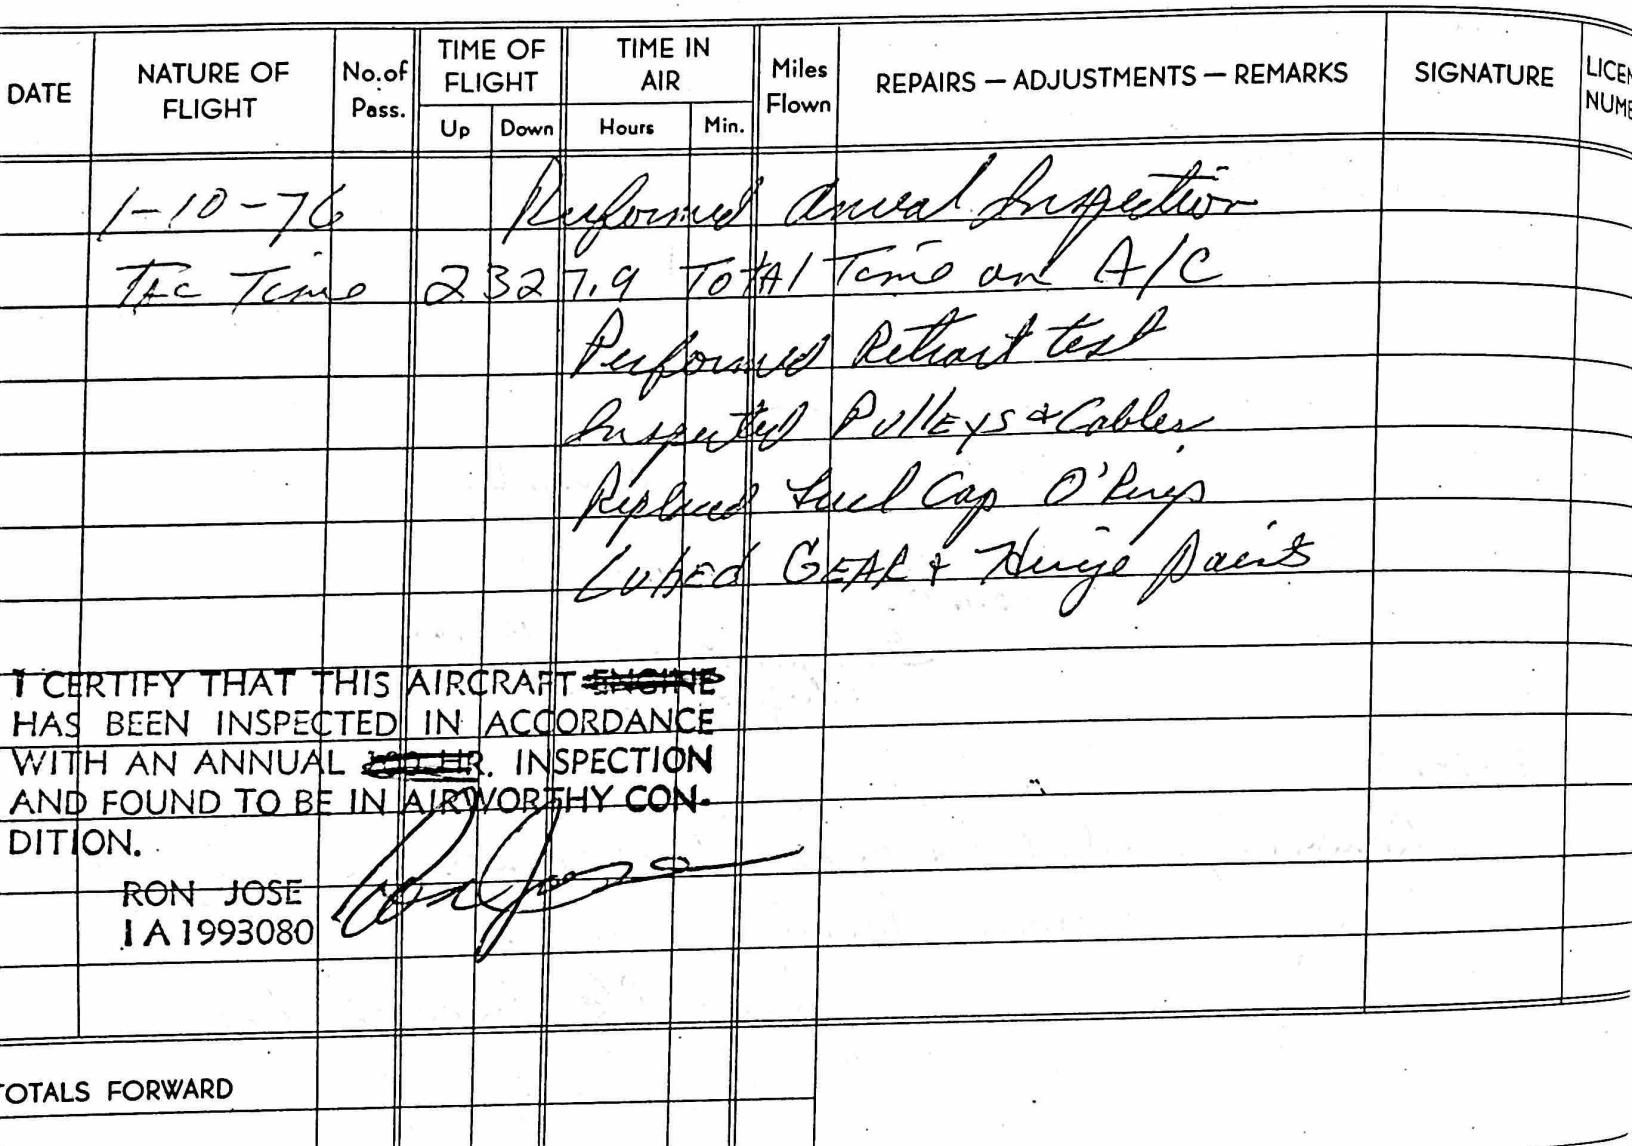 DATE NATURE OF FLIGHT No. of Pass. TIME OF FLIGHT Up Down TIME IN AIR Hours Min. Miles Flown REPAIRS — ADJUSTMENTS — REMARKS SIGNATURE LICEN NUMB
1-10-76 Performed Anual Inspection
TAC Time 2327.9 TOTAl Time on A/C
Performed Retract test
Inspected PullEys & Cables
Replaced Fuel Cap O'Rings
LubEd GEAR & Hinge Points
I CERTIFY THAT THIS AIRCRAFT ENGINE
HAS BEEN INSPECTED IN ACCORDANCE
WITH AN ANNUAL 100 HR. INSPECTION
AND FOUND TO BE IN AIRWORTHY CON-
DITION.
Ron Jose
RON JOSE
IA1993080
TOTALS FORWARD